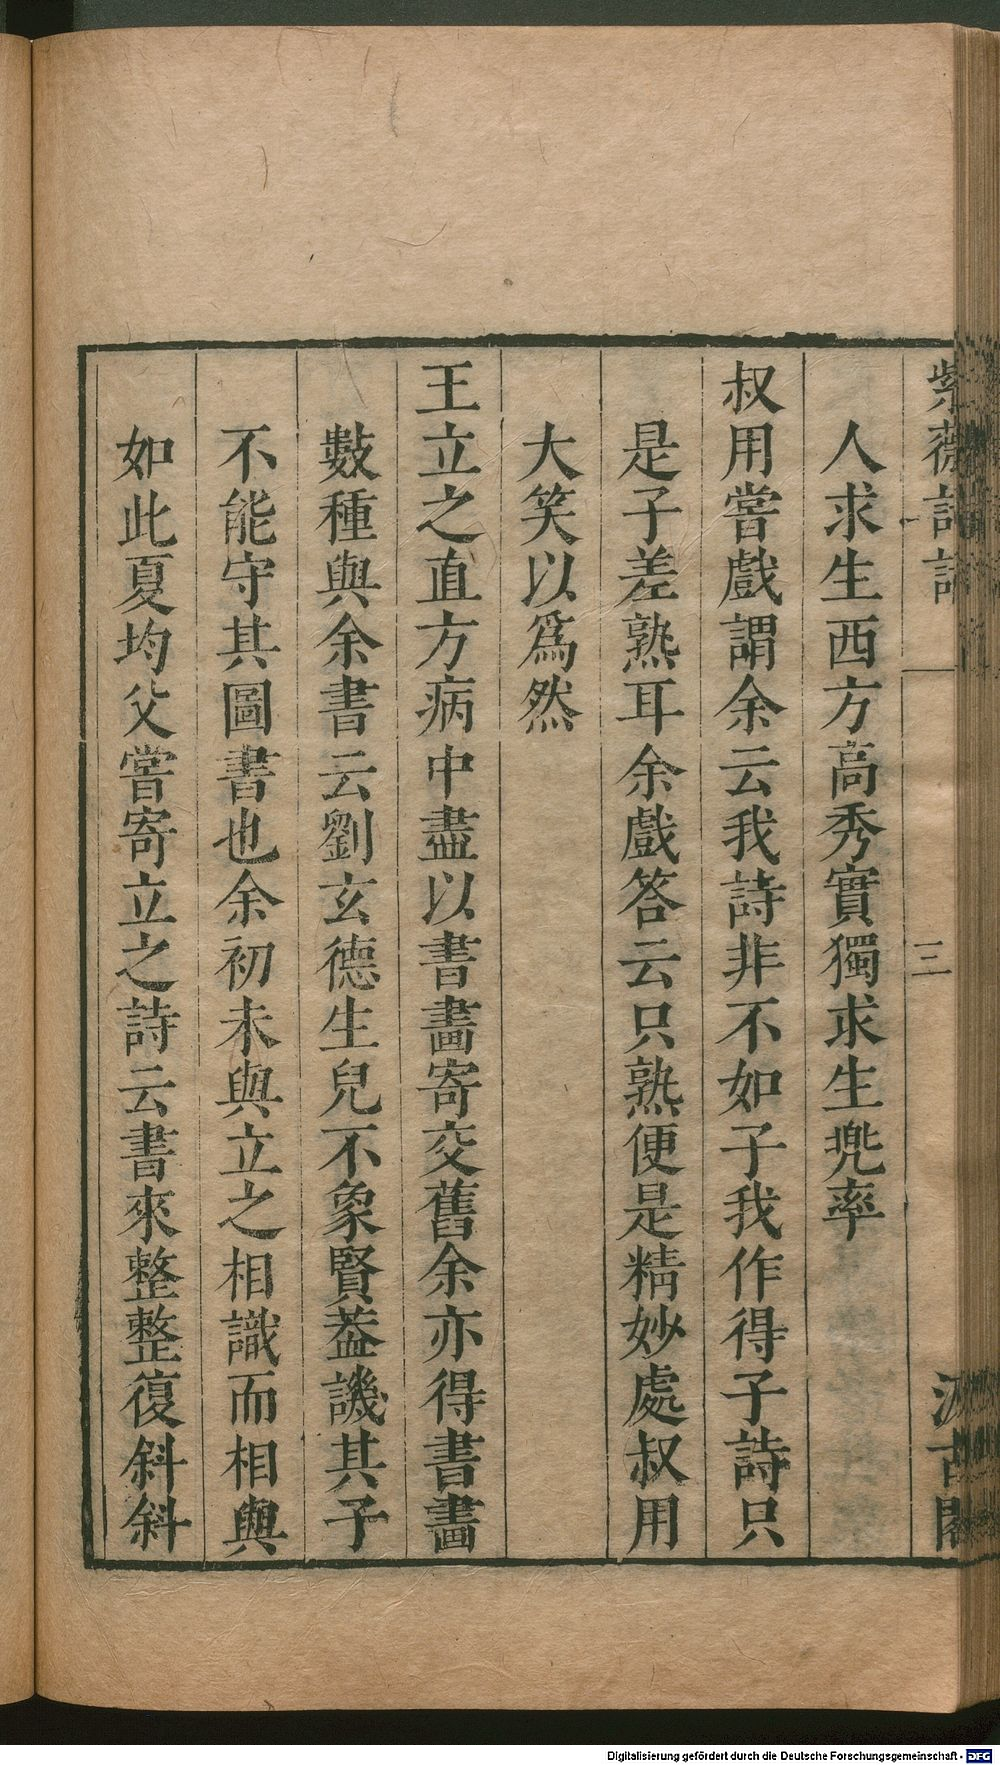 紫薇詩話
三
汲古閣
人求生西方高秀實獨求生兠率
叔用嘗戲謂余云我詩非不如子我作得子詩只
是子差熟耳余戲答云只熟便是精妙處叔用
大笑以爲然
王立之直方病中盡以書畫寄交舊余亦得書畫
數種與余書云劉玄德生兒不象賢葢譏其子
不能守其圖書也余初未與立之相識而相與
如此夏均父嘗寄立之詩云書來整整復斜斜
Digitalisierung gefördert durch die Deutsche Forschungsgemeinschaft - DFG